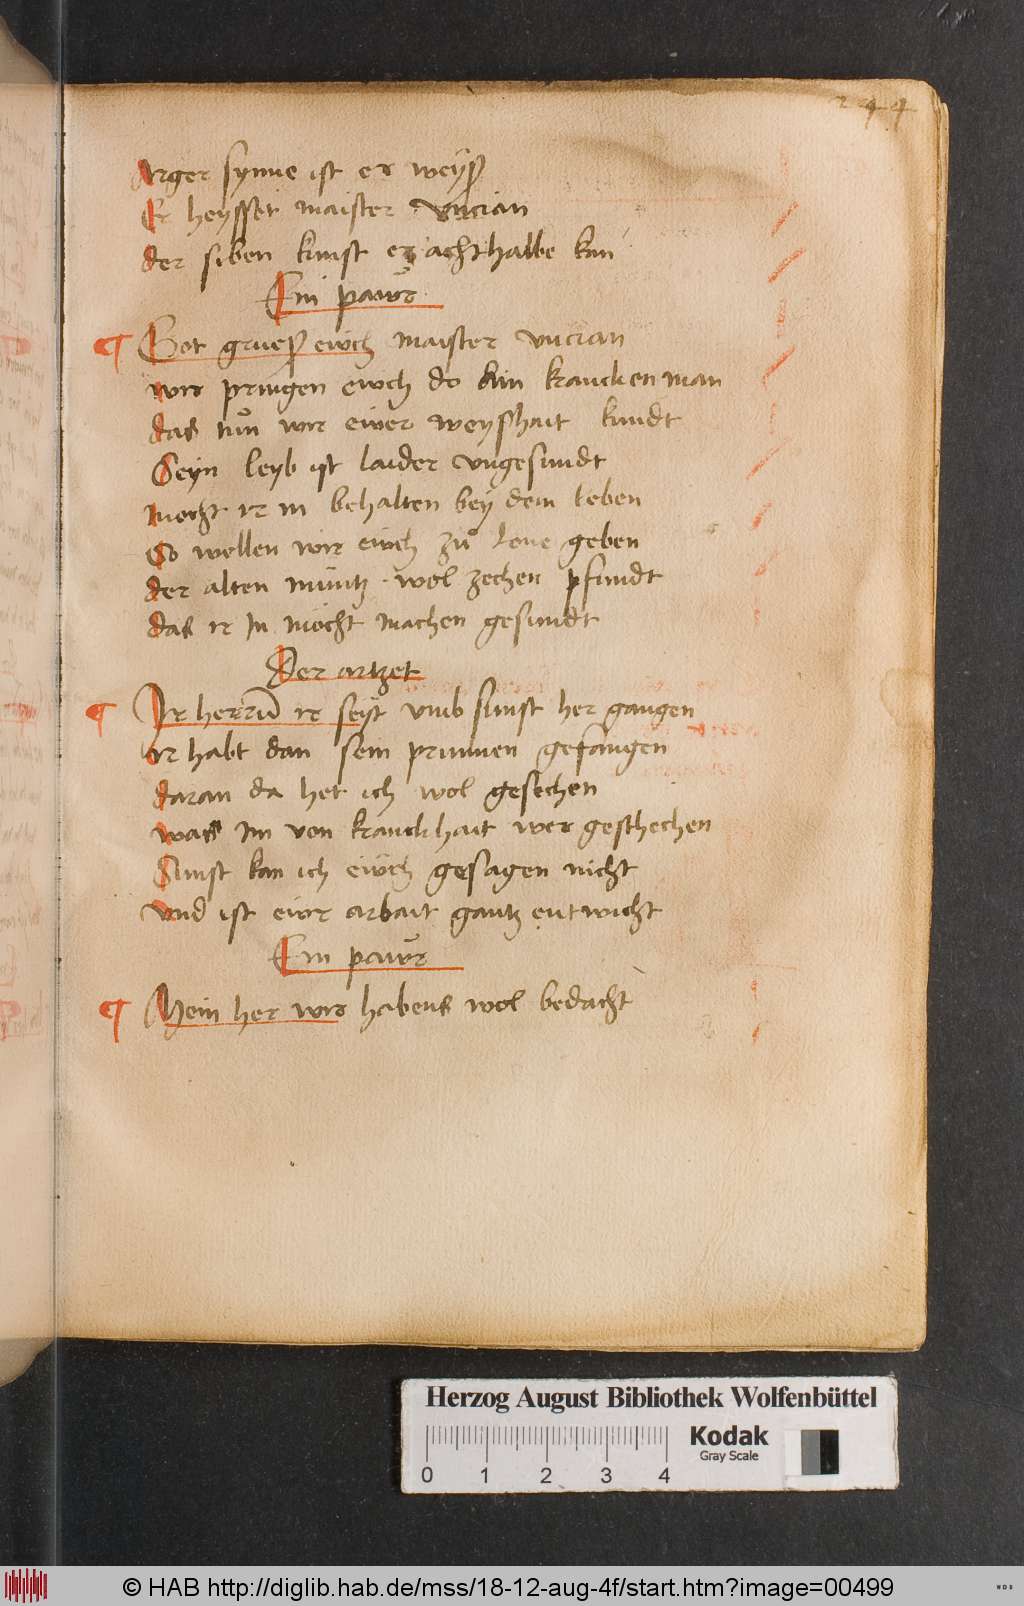 244
Arger synne ist er weyß
Er heysset maister vncian
der siben kunst er achthalbe kan
Ein pawr
¶ Got grueß ewch maister vncian
wir pringen ewch do ain krancken man
das tun wir ewer weyßhait kundt
Seyn leyb ist laider vngesundt
mocht ir in behalten bey dem leben
So wellen wir ewch zu lone geben
der alten müntz wol zechen pfundt
das ir In möcht machen gesundt
Der artzet
¶ Ir herrn ir seyt vmb sunst her gangen
ir habt dan sein prunnen gefangen
daran da het ich wol gesechen
was im von kranckhait wer geschechen
Sunst kan ich ewch gesagen nicht
vnd ist ewr arbait gantz entwicht
Ein pawr
¶ Mein her wir habens wol bedacht
Herzog August Bibliothek Wolfenbüttel
Kodak
Gray Scale
0 1 2 3 4
© HAB http://diglib.hab.de/mss/18-12-aug-4f/start.htm?image=00499